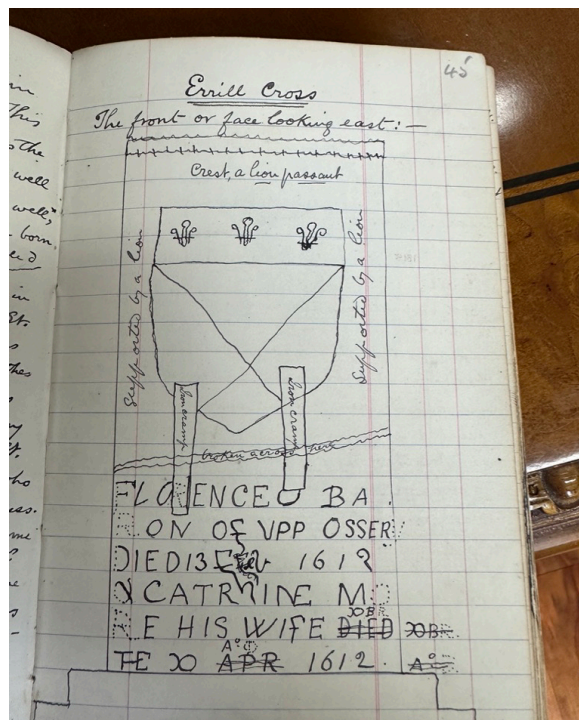 45
Errill Cross
The front or face looking east:—
Crest, a lion passant
Supported by a lion
Supported by a lion
Iron cramp
Iron cramp
broken across here
FLORENCE BA
RON OF VPP OSSER
DIED 13 FEB 1613
CATRINE MO
RE HIS WIFE DIED OB
TE APR 1612. Aº
in
This
the
well
well,
born
in